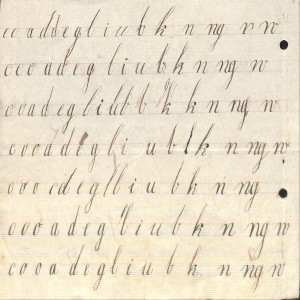 c o a d d e g l i u b k n ng v w
c o o a d e g l i u b k n ng w
c o o a d e g l i u b b k k n n ng w
c o o a d e g l i u b l k n ng w
o o o c d e g l i u b k n ng
c o o a d e g l i u b k n ng w
c o o a d e g l i u b k n ng w